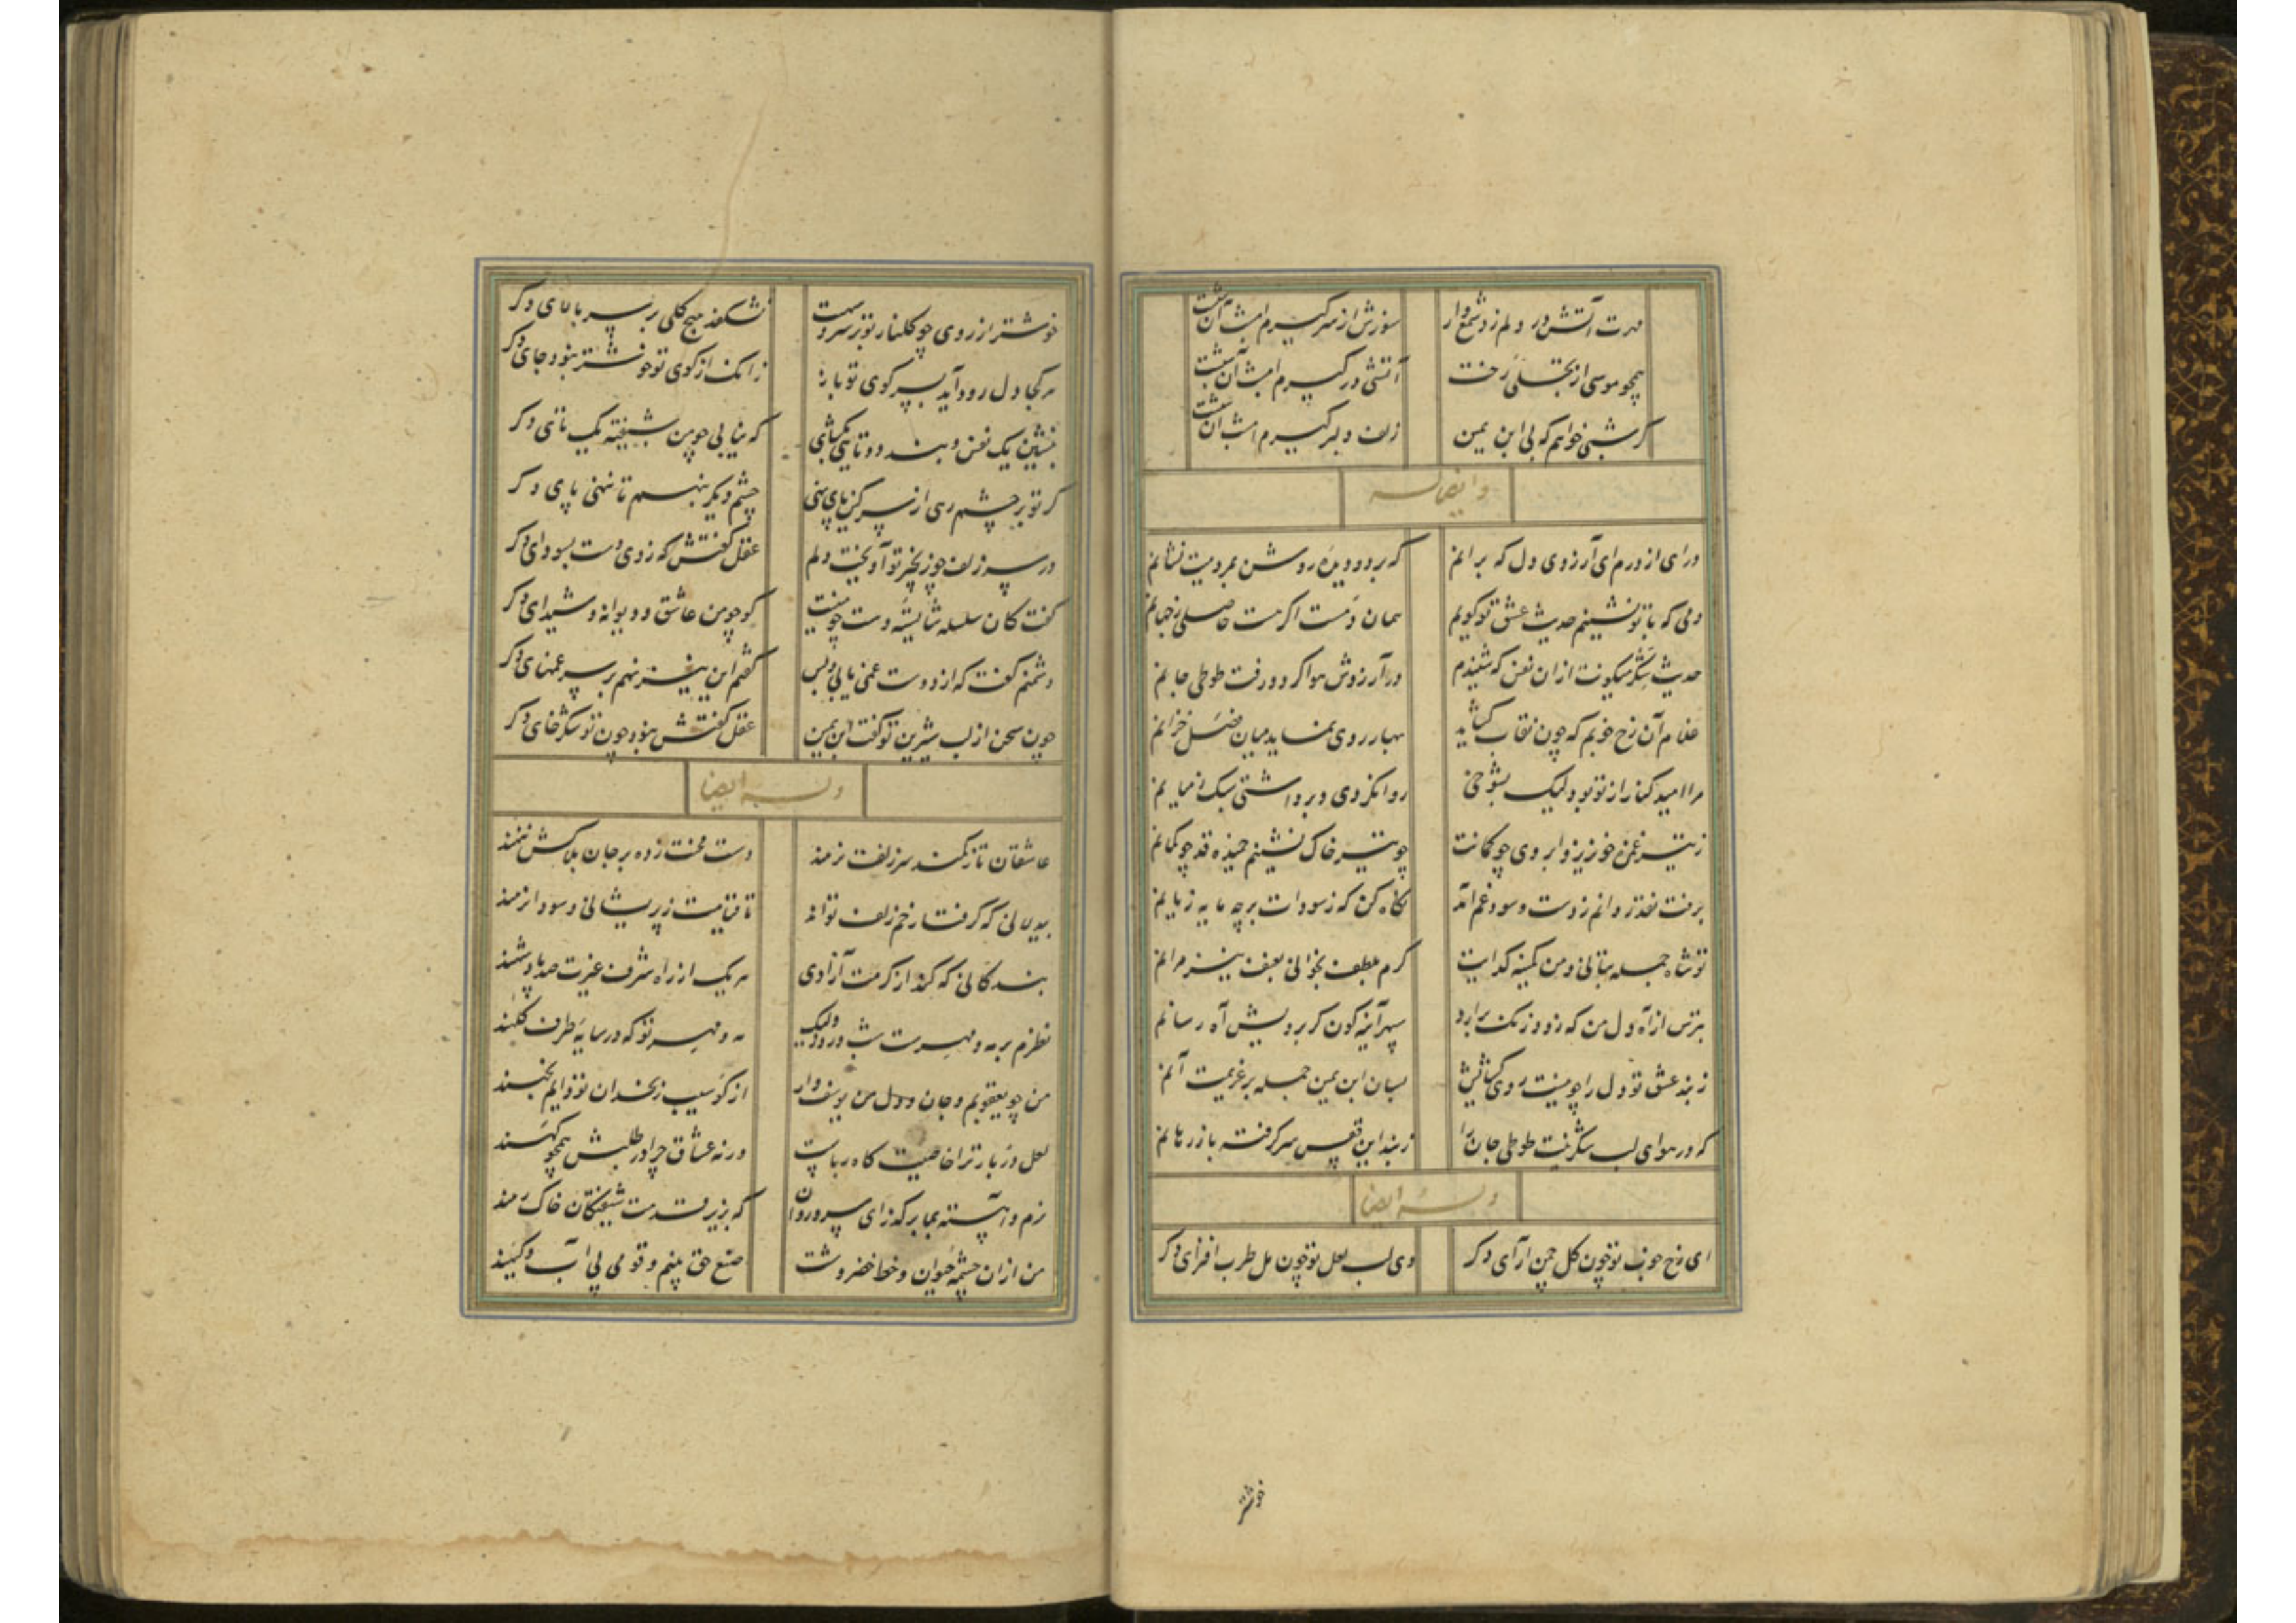 مهرت آتش در دلم زد شمع وار سوزش از سر گیرم امشب آن شبست
همچو موسی از تجلی رخت آتشی در گیرم امشب آن شبست
گر شبی خواهم که بی ابن یمین زلف دلبر گیرم امشب آن شبست
و ایضا له
درای از درم ای آرزوی دل که برانم که بر دو دیده روشن بمردمیت نشانم
دمی که با تو نشینم حدیث عشق تو گویم همان دمست اگر هست حاصلی ز جهانم
حدیث شکر میگونت از ان نفس که شنیدم در آرزوش هوا کرد و رفت طوطی جانم
غلام آن رخ خوبم که چون نقاب گشاید بهار روی نماید میان فصل خزانم
مرا امید کنار از تو بود لیک بشوخی روانکردی و برداشتی سبک ز میانم
ز تیر غمزه خونریز و ابروی چو کمانت چو تیر خاک نشینم خمیده قد چو کمانم
برفت نقد روانم ز دست و سود غم آمد نگاه کن که ز سودات بر چه مایه زیانم
تو شاه جمله بتانی و من کمینه گدایت گرم بلطف بخوانی بعنف نیز مرانم
بترس از آه دل من که زود زنگ برارد سپهر آینه گون گر برویش آه رسانم
ز بند عشق تو دل را چو نیست روی گشایش بسان ابن یمین جمله بر عزیمت آنم
که در هوای لب شکرینت طوطی جان را ز بند این قفس سر گرفته باز رهانم
وله ایضا
ای رخ خوب تو چون گل چمن آرای دگر وی لب لعل تو چون مل طرب افزای دگر
خوشتر
خوشتر از روی چو گلنار تو بر سرو سهیت نشکفد هیچ گلی بر سر بالای دگر
هر کجا دل رود آید بسر کوی تو باز زانک از کوی تو خوشتر نبود جای دگر
بنشین یک نفس و بند دو تایی بگشای که نیابی چو من شیفته یک تای دگر
گر تو بر چشم رهی از سر کین پای نهی چشم دیگر بنهم تا بنهی پای دگر
در سر زلف چو زنجیر تو آویخت دلم عقل گفتش که زدی دست بسودای دگر
گفت کان سلسله شایسته دست چو منیست کو چو من عاشق و دیوانه و شیدای دگر
دشمنم گفت که از دوست غمی یابی و بس گفتم این نیز نهم بر سر غمهای دگر
چون سخن از لب شیرین تو گفت ابن یمین عقل گفتش نبود چون تو شکرخای دگر
وله ایضا
عاشقان تا ز کمند سر زلفت نرمند دست محنت زده بر جان بلاکش ننهند
بیدلانی که گرفتار خم زلف تواند تا قیامت ز پریشانی و سودا نرهند
بندگانی که کند از کرمت آزادی هر یک از راه شرف غیرت صد پادشهند
نظرم بر مه و مهرست شب و روز ولیک مه و مهر تو که در سایه طرف کلهند
من چو یعقوبم و جان و دل من یوسف وار از گو سیب زنخدان تو دایم بچهند
لعل دربار ترا خاصیت کاه رباست ورنه عشاق چرا در طلبش همچو کهند
نرم و آهسته بما بر گذر ای سرو روان که بزیر قدمت شیفتگان خاک رهند
من از ان چشمه حیوان و خط خضر وشت صنع حق بینم و قومی پی آب و گیهند